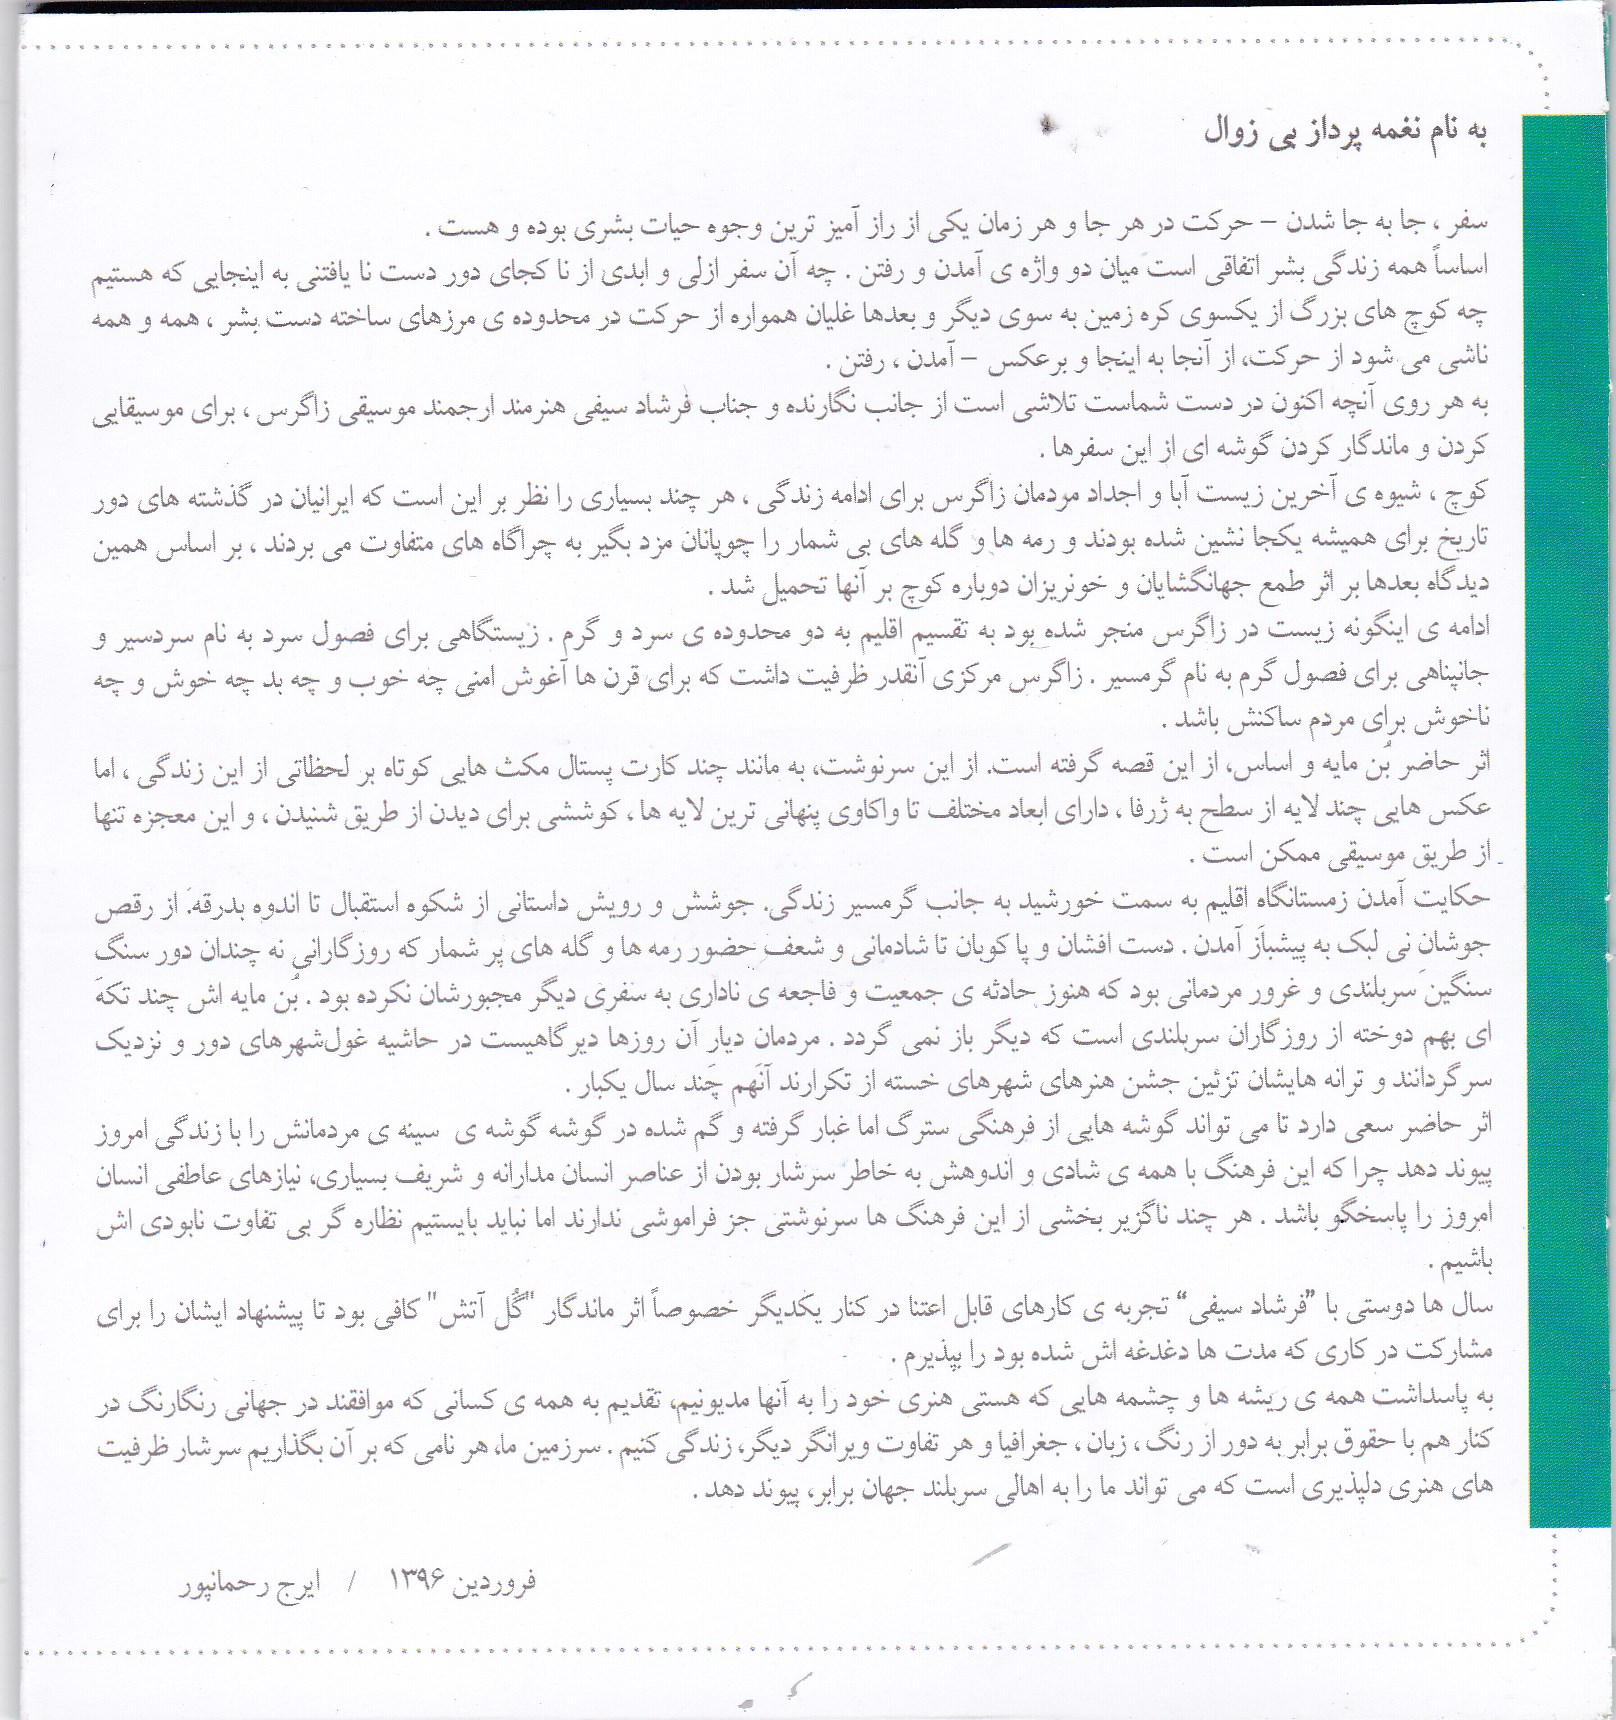 به نام نغمه پرداز بی زوال
سفر ، جا به جا شدن – حرکت در هر جا و هر زمان یکی از راز آمیز ترین وجوه حیات بشری بوده و هست .
اساساً همه زندگی بشر اتفاقی است میان دو واژه ی آمدن و رفتن . چه آن سفر ازلی و ابدی از نا کجای دور دست نا یافتنی به اینجایی که هستیم
چه کوچ های بزرگ از یکسوی کره زمین به سوی دیگر و بعدها غلیان همواره از حرکت در محدوده ی مرزهای ساخته دست بشر ، همه و همه
ناشی می شود از حرکت، از آنجا به اینجا و برعکس – آمدن ، رفتن .
به هر روی آنچه اکنون در دست شماست تلاشی است از جانب نگارنده و جناب فرشاد سیفی هنرمند ارجمند موسیقی زاگرس ، برای موسیقایی
کردن و ماندگار کردن گوشه ای از این سفرها .
کوچ ، شیوه ی آخرین زیست آبا و اجداد مردمان زاگرس برای ادامه زندگی ، هر چند بسیاری را نظر بر این است که ایرانیان در گذشته های دور
تاریخ برای همیشه یکجا نشین شده بودند و رمه ها و گله های بی شمار را چوپانان مزد بگیر به چراگاه های متفاوت می بردند ، بر اساس همین
دیدگاه بعدها بر اثر طمع جهانگشایان و خونریزان دوباره کوچ بر آنها تحمیل شد .
ادامه ی اینگونه زیست در زاگرس منجر شده بود به تقسیم اقلیم به دو محدوده ی سرد و گرم . زیستگاهی برای فصول سرد به نام سردسیر و
جانپناهی برای فصول گرم به نام گرمسیر . زاگرس مرکزی آنقدر ظرفیت داشت که برای قرن ها آغوش امنی چه خوب و چه بد چه خوش و چه
ناخوش برای مردم ساکنش باشد .
اثر حاضر بُن مایه و اساس، از این قصه گرفته است. از این سرنوشت، به مانند چند کارت پستال مکث هایی کوتاه بر لحظاتی از این زندگی ، اما
عکس هایی چند لایه از سطح به ژرفا ، دارای ابعاد مختلف تا واکاوی پنهانی ترین لایه ها ، کوششی برای دیدن از طریق شنیدن ، و این معجزه تنها
از طریق موسیقی ممکن است .
حکایت آمدن زمستانگاه اقلیم به سمت خورشید به جانب گرمسیر زندگی. جوشش و رویش داستانی از شکوه استقبال تا اندوه بدرقه. از رقص
جوشان نی لبک به پیشباز آمدن . دست افشان و پا کوبان تا شادمانی و شعف حضور رمه ها و گله های پر شمار که روزگارانی نه چندان دور سنگ
سنگین سربلندی و غرور مردمانی بود که هنوز حادثه ی جمعیت و فاجعه ی ناداری به سفری دیگر مجبورشان نکرده بود . بُن مایه اش چند تکه
ای بهم دوخته از روزگاران سربلندی است که دیگر باز نمی گردد . مردمان دیار آن روزها دیرگاهیست در حاشیه غول‌شهرهای دور و نزدیک
سرگردانند و ترانه هایشان تزئین جشن هنرهای شهرهای خسته از تکرارند آنهم چند سال یکبار .
اثر حاضر سعی دارد تا می تواند گوشه هایی از فرهنگی سترگ اما غبار گرفته و گم شده در گوشه گوشه ی سینه ی مردمانش را با زندگی امروز
پیوند دهد چرا که این فرهنگ با همه ی شادی و اندوهش به خاطر سرشار بودن از عناصر انسان مدارانه و شریف بسیاری، نیازهای عاطفی انسان
امروز را پاسخگو باشد . هر چند ناگزیر بخشی از این فرهنگ ها سرنوشتی جز فراموشی ندارند اما نباید بایستیم نظاره گر بی تفاوت نابودی اش
باشیم .
سال ها دوستی با ”فرشاد سیفی“ تجربه ی کارهای قابل اعتنا در کنار یکدیگر خصوصاً اثر ماندگار "گُل آتش" کافی بود تا پیشنهاد ایشان را برای
مشارکت در کاری که مدت ها دغدغه اش شده بود را بپذیرم .
به پاسداشت همه ی ریشه ها و چشمه هایی که هستی هنری خود را به آنها مدیونیم، تقدیم به همه ی کسانی که موافقند در جهانی رنگارنگ در
کنار هم با حقوق برابر به دور از رنگ ، زبان ، جغرافیا و هر تفاوت ویرانگر دیگر، زندگی کنیم . سرزمین ما، هر نامی که بر آن بگذاریم سرشار ظرفیت
های هنری دلپذیری است که می تواند ما را به اهالی سربلند جهان برابر، پیوند دهد .
فروردین ۱۳۹۶ / ایرج رحمانپور